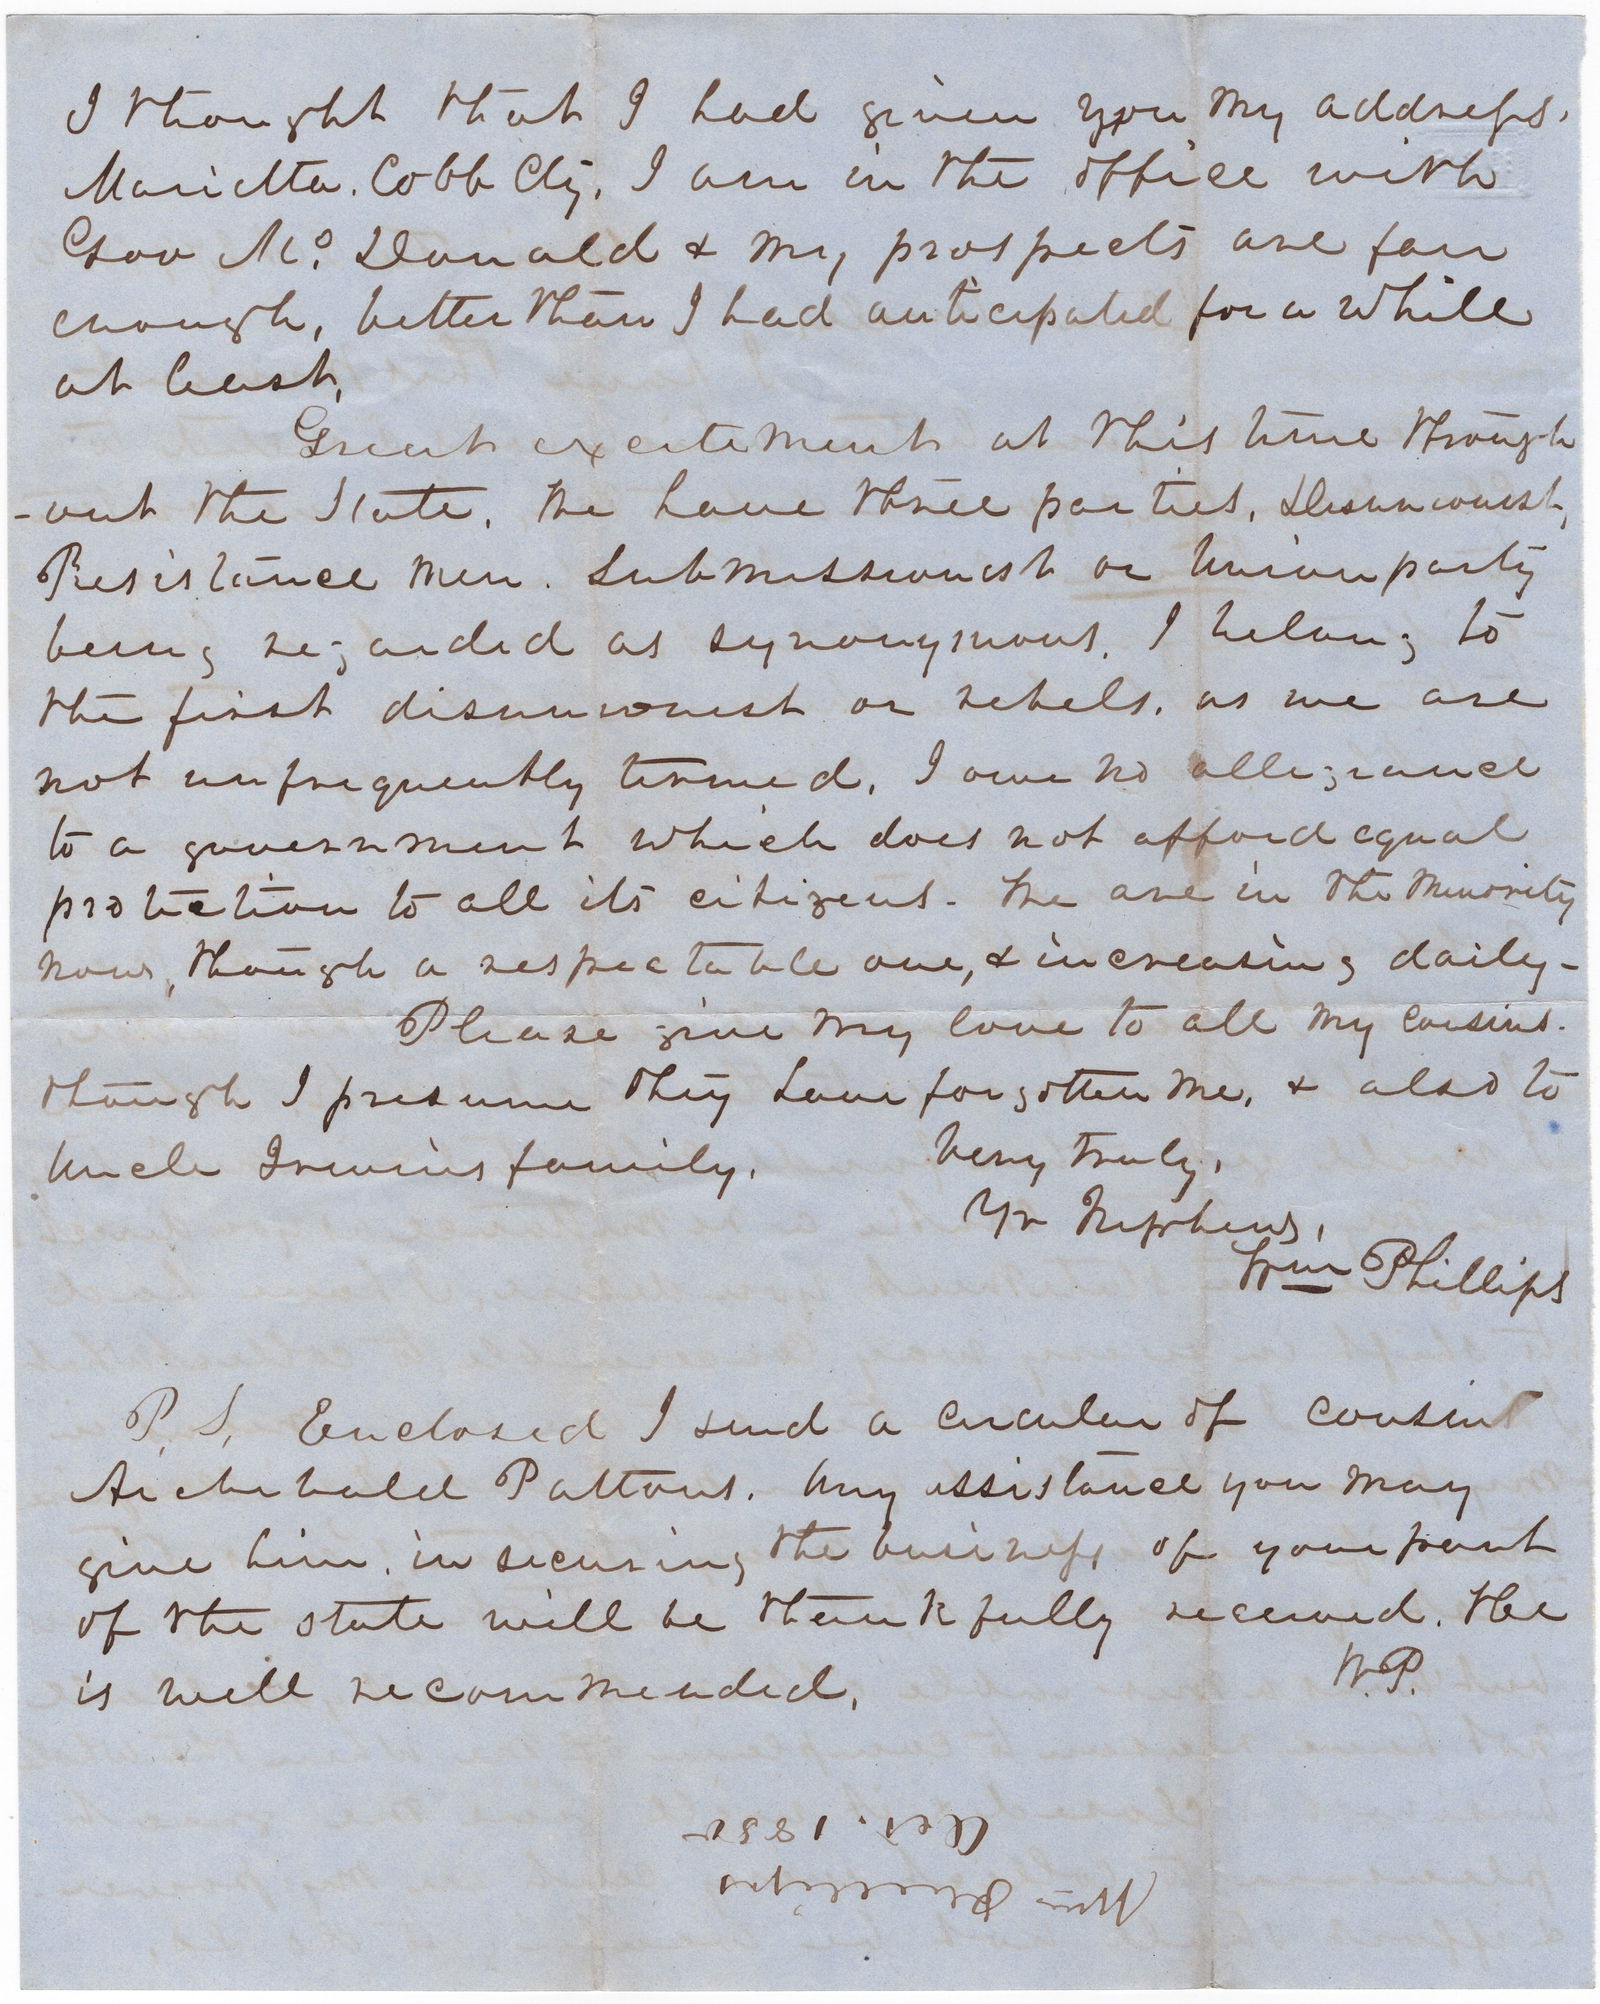 I thought that I had given you my address.
Marietta. Cobb Cty. I am in the office with
Gov Mc Donald & my prospects are fair
enough, better than I had anticipated for a while
at least.
Great excitement at this time through
-out the State. We have three parties, Disunionist,
Resistance men. Submissionist or Union party
being regarded as synonymous. I belong to
the first disunionist or rebels. as we are
not unfrequently termed. I owe no allegiance
to a government which does not afford equal
protection to all its citizens - We are in the minority
now, though a respectable one, & increasing daily -
Please give my love to all my cousins.
though I presume they have forgotten me, & also to
Uncle Irwins family.
Very truly,
Yr Nephew,
Wm Phillips
P. S. Enclosed I send a circular of cousin
Archibald Pattons. Any assistance you may
give him, in securing the business of your part
of the state will be thankfully received. He
is well recommended.
W.P.
Wm Phillips
Oct. 1850